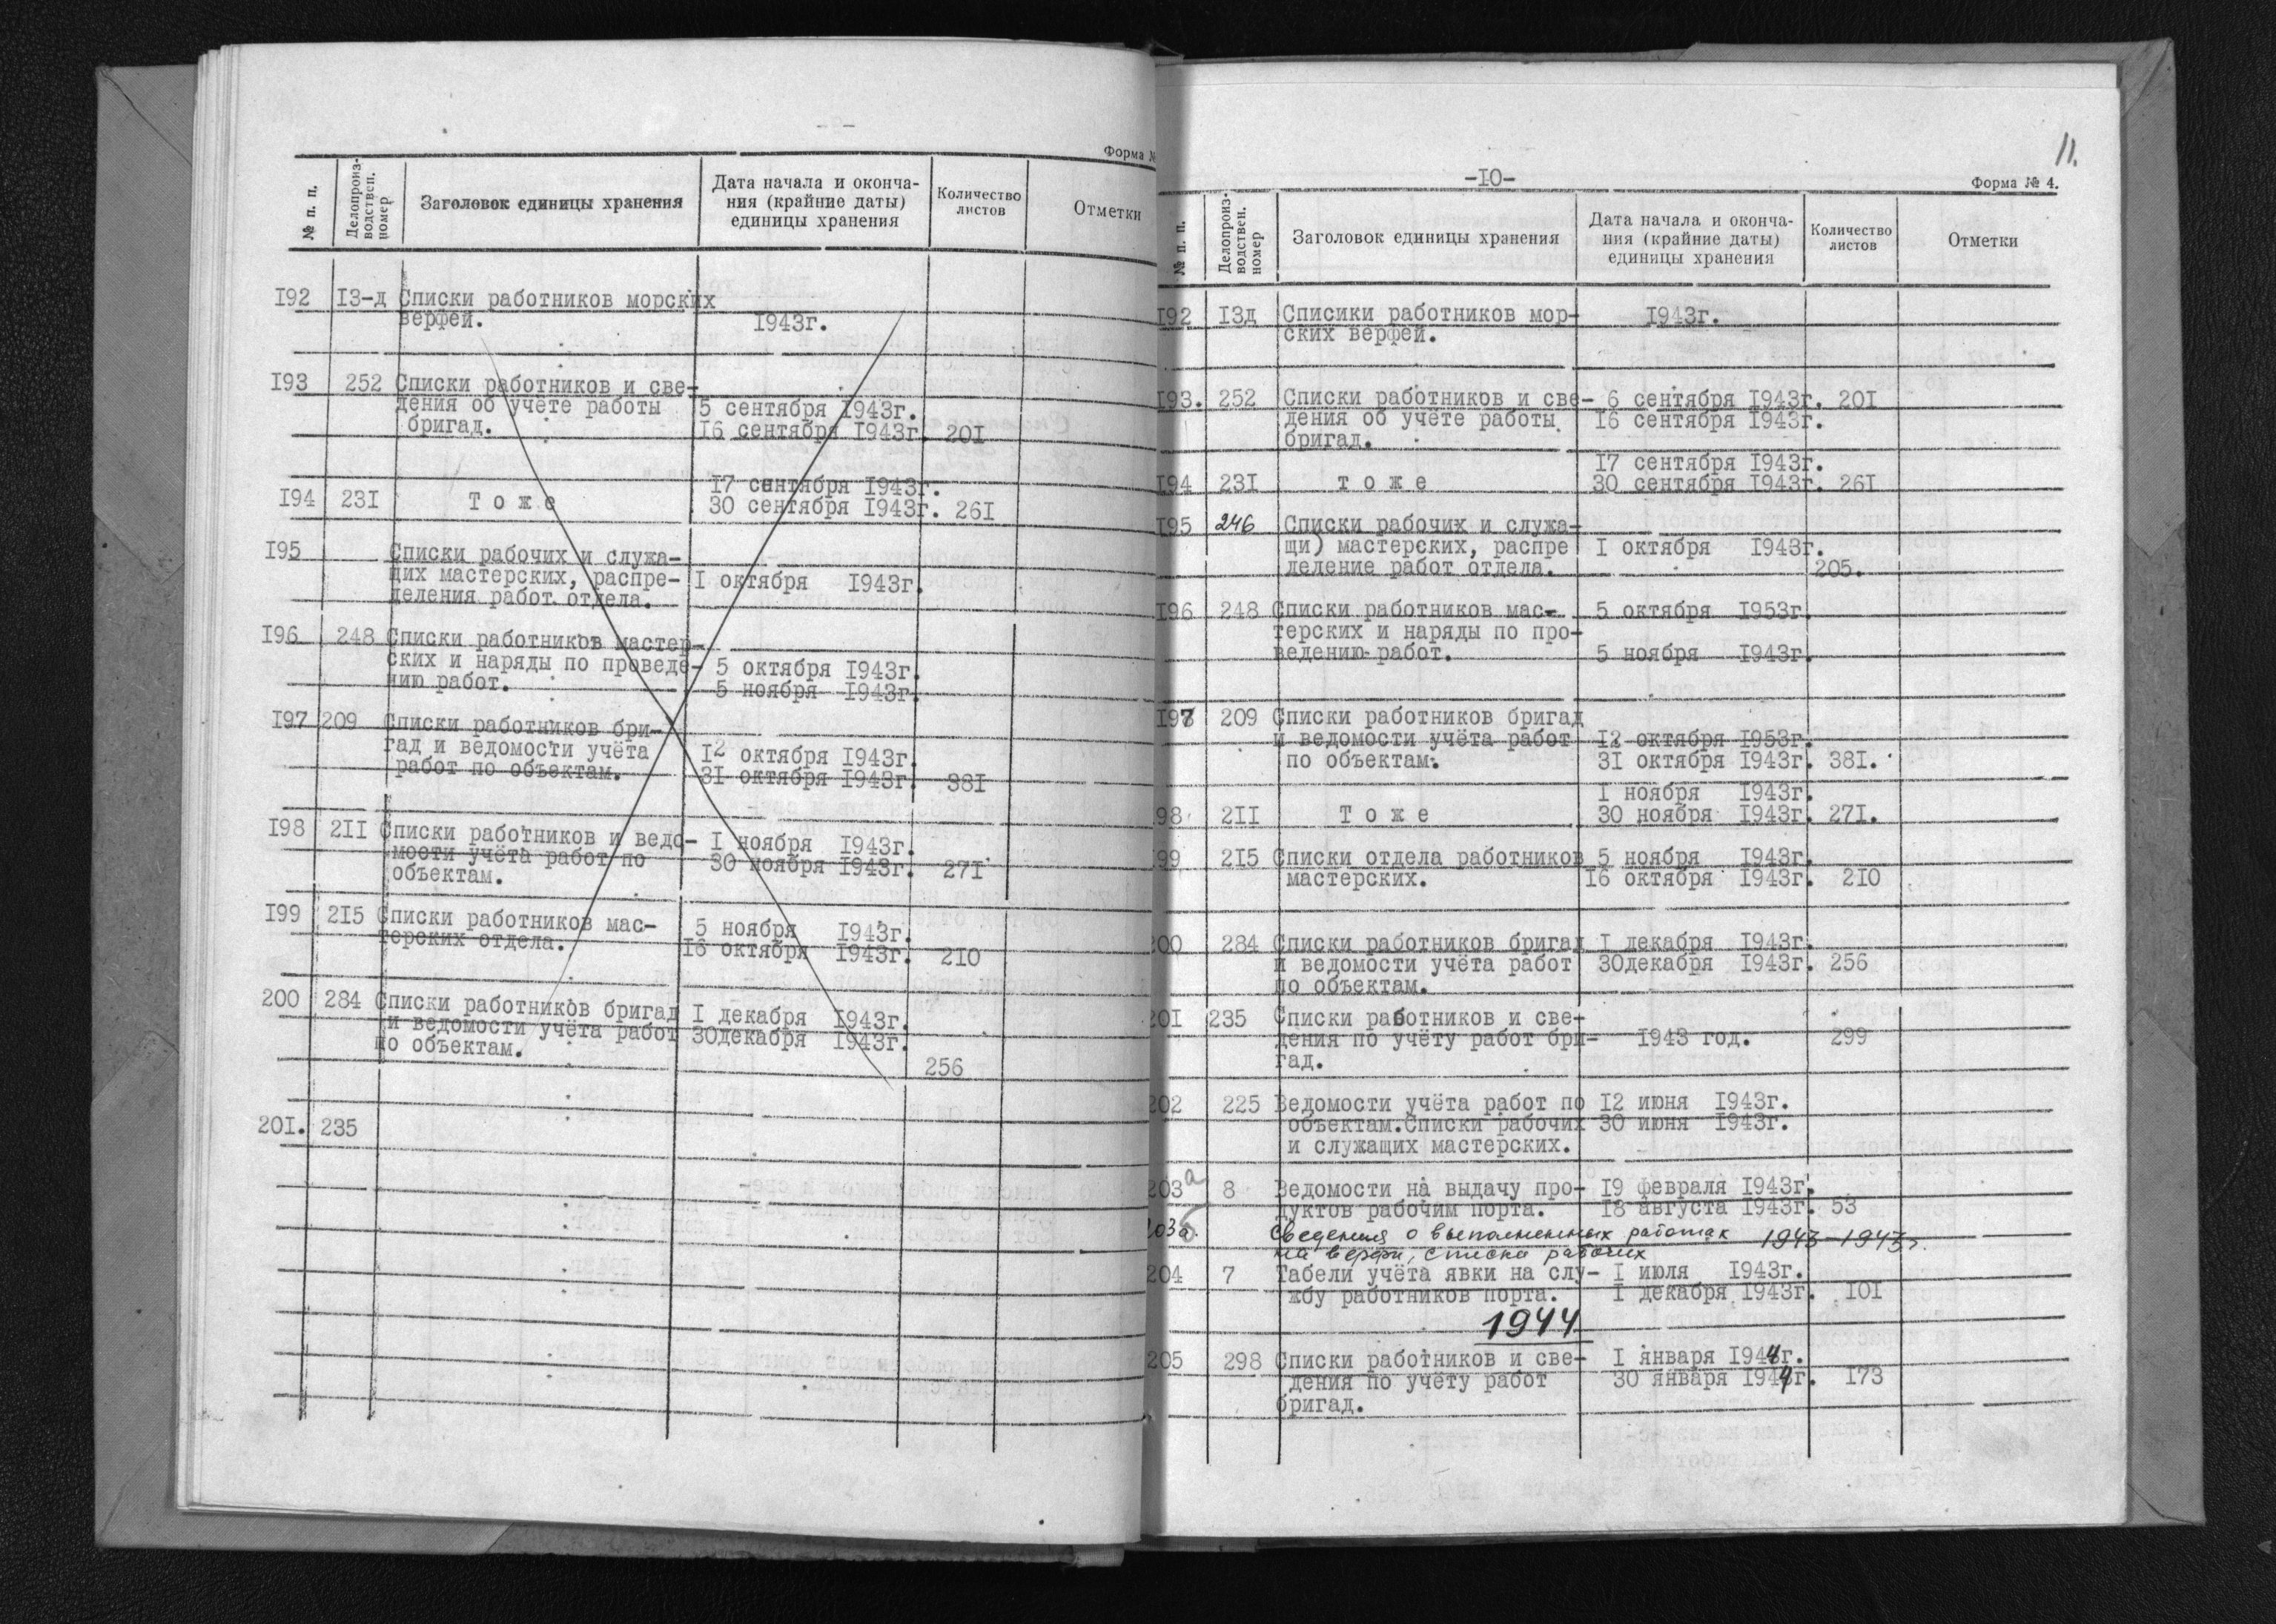 Форма №
№ п. п.
Делопроиз-
водствен.
номер
Заголовок единицы хранения
Дата начала и оконча-
ния (крайние даты)
единицы хранения
Количество
листов
Отметки
I92 I3-д Списки работников морских
верфей. I943г.
I93 252 Списки работников и све-
дения об учёте работы 5 сентября I943г.
бригад. I6 сентября I943г. 20I
I7 сентября I943г.
I94 23I Т о ж е 30 сентября I943г. 26I
I95 Списки рабочих и служа-
щих мастерских, распре- I октября I943г.
деления работ отдела.
I96 248 Списки работников мастер-
ских и наряды по проведе- 5 октября I943г.
нию работ. 5 ноября I943г.
I97 209 Списки работников бри-
гад и ведомости учёта I2 октября I943г.
работ по объектам. 3I октября I943г. 38I
I98 2II Списки работников и ведо- I ноября I943г.
мости учёта работ по 30 ноября I943г. 27I
объектам.
I99 2I5 Списки работников мас- 5 ноября I943г.
терских отдела. I6 октября I943г. 2I0
200 284 Списки работников бригад I декабря I943г.
и ведомости учёта работ 30декабря I943г.
по объектам.
256
20I. 235
11.
-I0-
Форма № 4.
№ п. п.
Делопроиз-
водствен.
номер
Заголовок единицы хранения
Дата начала и оконча-
ния (крайние даты)
единицы хранения
Количество
листов
Отметки
I92 I3д Списики работников мор- I943г.
ских верфей.
I93. 252 Списки работников и све- 6 сентября I943г. 20I
дения об учёте работы I6 сентября I943г.
бригад.
I7 сентября I943г.
I94 23I т о ж е 30 сентября I943г. 26I
I95 246 Списки рабочих и служа-
щи) мастерских, распре I октября I943г.
деление работ отдела. 205.
I96 248 Списки работников мас- 5 октября I953г.
терских и наряды по про-
ведению работ. 5 ноября I943г.
I97 209 Списки работников бригад
и ведомости учёта работ I2 октября I953г.
по объектам. 3I октября I943г. 38I.
I ноября I943г.
98 2II Т о ж е 30 ноября I943г. 27I.
99 2I5 Списки отдела работников 5 ноября I943г.
мастерских. I6 октября I943г. 2I0
200 284 Списки работников бригад I декабря I943г.
и ведомости учёта работ 30декабря I943г. 256
по объектам.
20I 235 Списки работников и све-
дения по учёту работ бри- I943 год. 299
гад.
202 225 Ведомости учёта работ по I2 июня I943г.
объектам.Списки рабочих 30 июня I943г.
и служащих мастерских.
203а 8 Ведомости на выдачу про- I9 февраля I943г.
дуктов рабочим порта. I8 августа I943г. 53
203б. Сведения о выполненных работах 1943-1943г.
на верфи, списки рабочих
204 7 Табели учёта явки на слу- I июля I943г.
жбу работников порта. I декабря I943г. I0I
1944
205 298 Списки работников и све- I января I944г.
дения по учёту работ 30 января I944г. I73
бригад.